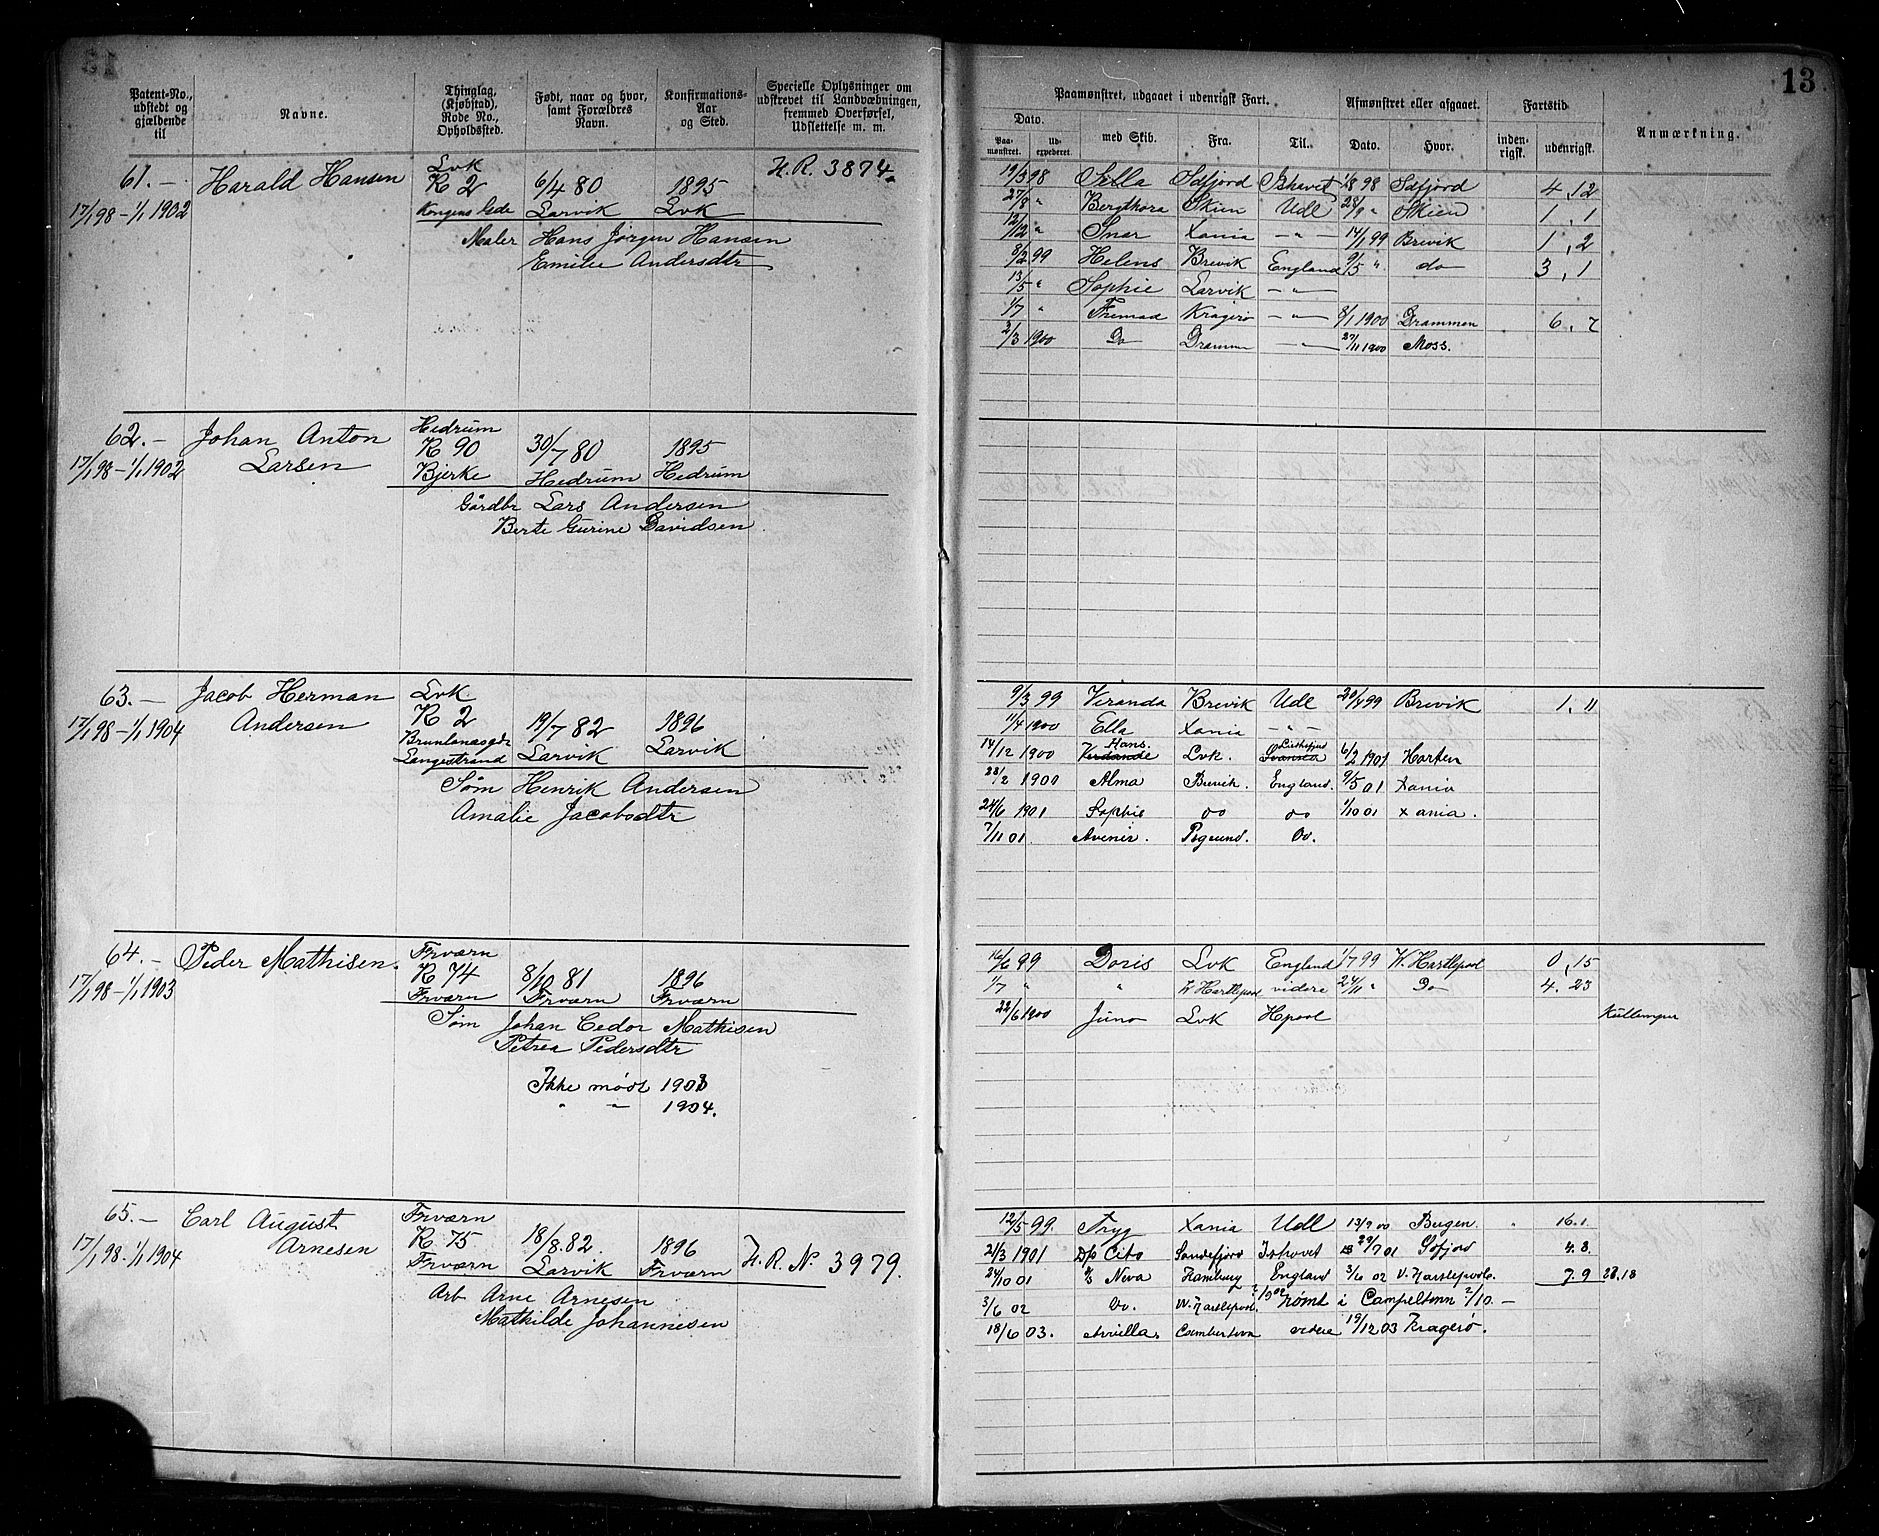 13
Patent-No., udstedt og gjældende til
Navne.
Thinglag, (Kjøbstad), Rode No., Opholdssted.
Født, naar og hvor, samt Forældres Navn.
Konfirmations- Aar og Sted.
Specielle Oplysninger om udskrevet til Landvæbningen, fremmed Overførsel, Udslettelse m. m.
Paamønstret, udgaaet i udenrigsk Fart.
Afmønstret eller afgaaet.
Fartstid
Anmærkning.
Dato.
Paa- mønstret.
Ud- expederet.
med Skib.
Fra.
Til.
Dato.
Hvor.
inden- rigsk.
udenrigsk.
61. — Harald Hansen Lvk H.R. 3874.
R 2 6/4 80 1895
17/1 98 – 1/1 1902 Kongens Gde Larvik Lvk
Maler Hans Jørgen Hansen
Emilie Andersdtr
19/3 98 Sella Sdfjord Ishavet 1/8 98 Sdfjord 4, 12
27/8 " Bergthora Skien Udl 28/9 " Skien 1, 1
12/12 " Snar Xania — " — 14/1 99 Brevik 1, 2
8/2 99 Helens Brevik England 9/5 " do 3, 1
13/5 " Sophie Larvik — " —
1/7 " Fremad Kragerø — " — 8/1 1900 Drammen 6, 7
2/3 1900 Do Drammen — " — 27/11 1900 Moss.
62. — Johan Anton Hedrum
Larsen R 90 30/7 80 1895
17/1 98 – 1/1 1902 Bjerke Hedrum Hedrum
Gårdbr Lars Andersen
Berte Gurine Davidsen
63. — Jacob Herman Lvk
Andersen R 2 19/7 82 1896
17/1 98 – 1/1 1904 Brunlanesgde Larvik Larvik
Langestrand
Søm Henrik Andersen
Amalie Jacobsdtr
9/3 99 Veranda Brevik Udl 20/4 99 Brevik 1, 11
11/4 1900 Ella Xania — " —
14/12 1900 Hans Lvk. 6/2 1901 Horten
28/2 1900 Alma Brevik England. 9/5 01 Xania
24/6 1901 Sophie do do 1/10 01 Xania.
7/11 01 Avenir. Pogrund. Do.
64. — Peder Mathisen. Frværn
R 74 8/10 81 1896
17/1 98 – 1/1 1903 Frværn Frværn Frværn
Søm Johan Cedor Mathisen
Petrea Pedersdtr
Ikke mødt 1903
" " 1904.
16/6 99 Doris Lvk England 1/7 99 W. Hartlepool 0, 15
1/7 " " W Hartlepool videre 24/11 " Do 4. 23
22/6 1900 Juno Lvk Hpool
65. — Carl August Frværn
Arnesen R 75 18/8. 82. 1896
17/1 98 – 1/1 1904 Frværn Larvik Frværn H.R. No. 3979.
Arb Arne Arnesen
Mathilde Johannesen
12/5 99. Tryg Xania Udl 13/9 00 Bergen. 16. 1
21/3 1901 D/s Cito Sandefjord Ishavet 29/7 01 Sdfjord 4. 8.
24/10 01 Neva Hamburg England 3/6 02 V. Hartlepool. 7. 9 28. 18
3/6 02 Do. W. Hartlepool. Rømt i Campeltown 2/10. —
18/6 03. videre 19/12 03 Kragerø.